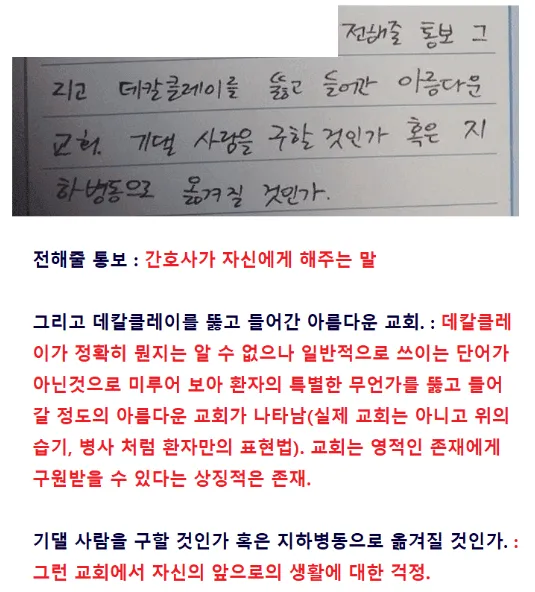 전해줄 통보 그
리고 데칼클레이를 뚫고 들어간 아름다운
교회. 기댈 사람을 구할 것인가 혹은 지
하병동으로 옮겨질 것인가.
전해줄 통보 : 간호사가 자신에게 해주는 말
그리고 데칼클레이를 뚫고 들어간 아름다운 교회. : 데칼클레
이가 정확히 뭔지는 알 수 없으나 일반적으로 쓰이는 단어가
아닌것으로 미루어 보아 환자의 특별한 무언가를 뚫고 들어
갈 정도의 아름다운 교회가 나타남(실제 교회는 아니고 위의
습기, 병사 처럼 환자만의 표현법). 교회는 영적인 존재에게
구원받을 수 있다는 상징적은 존재.
기댈 사람을 구할 것인가 혹은 지하병동으로 옮겨질 것인가. :
그런 교회에서 자신의 앞으로의 생활에 대한 걱정.